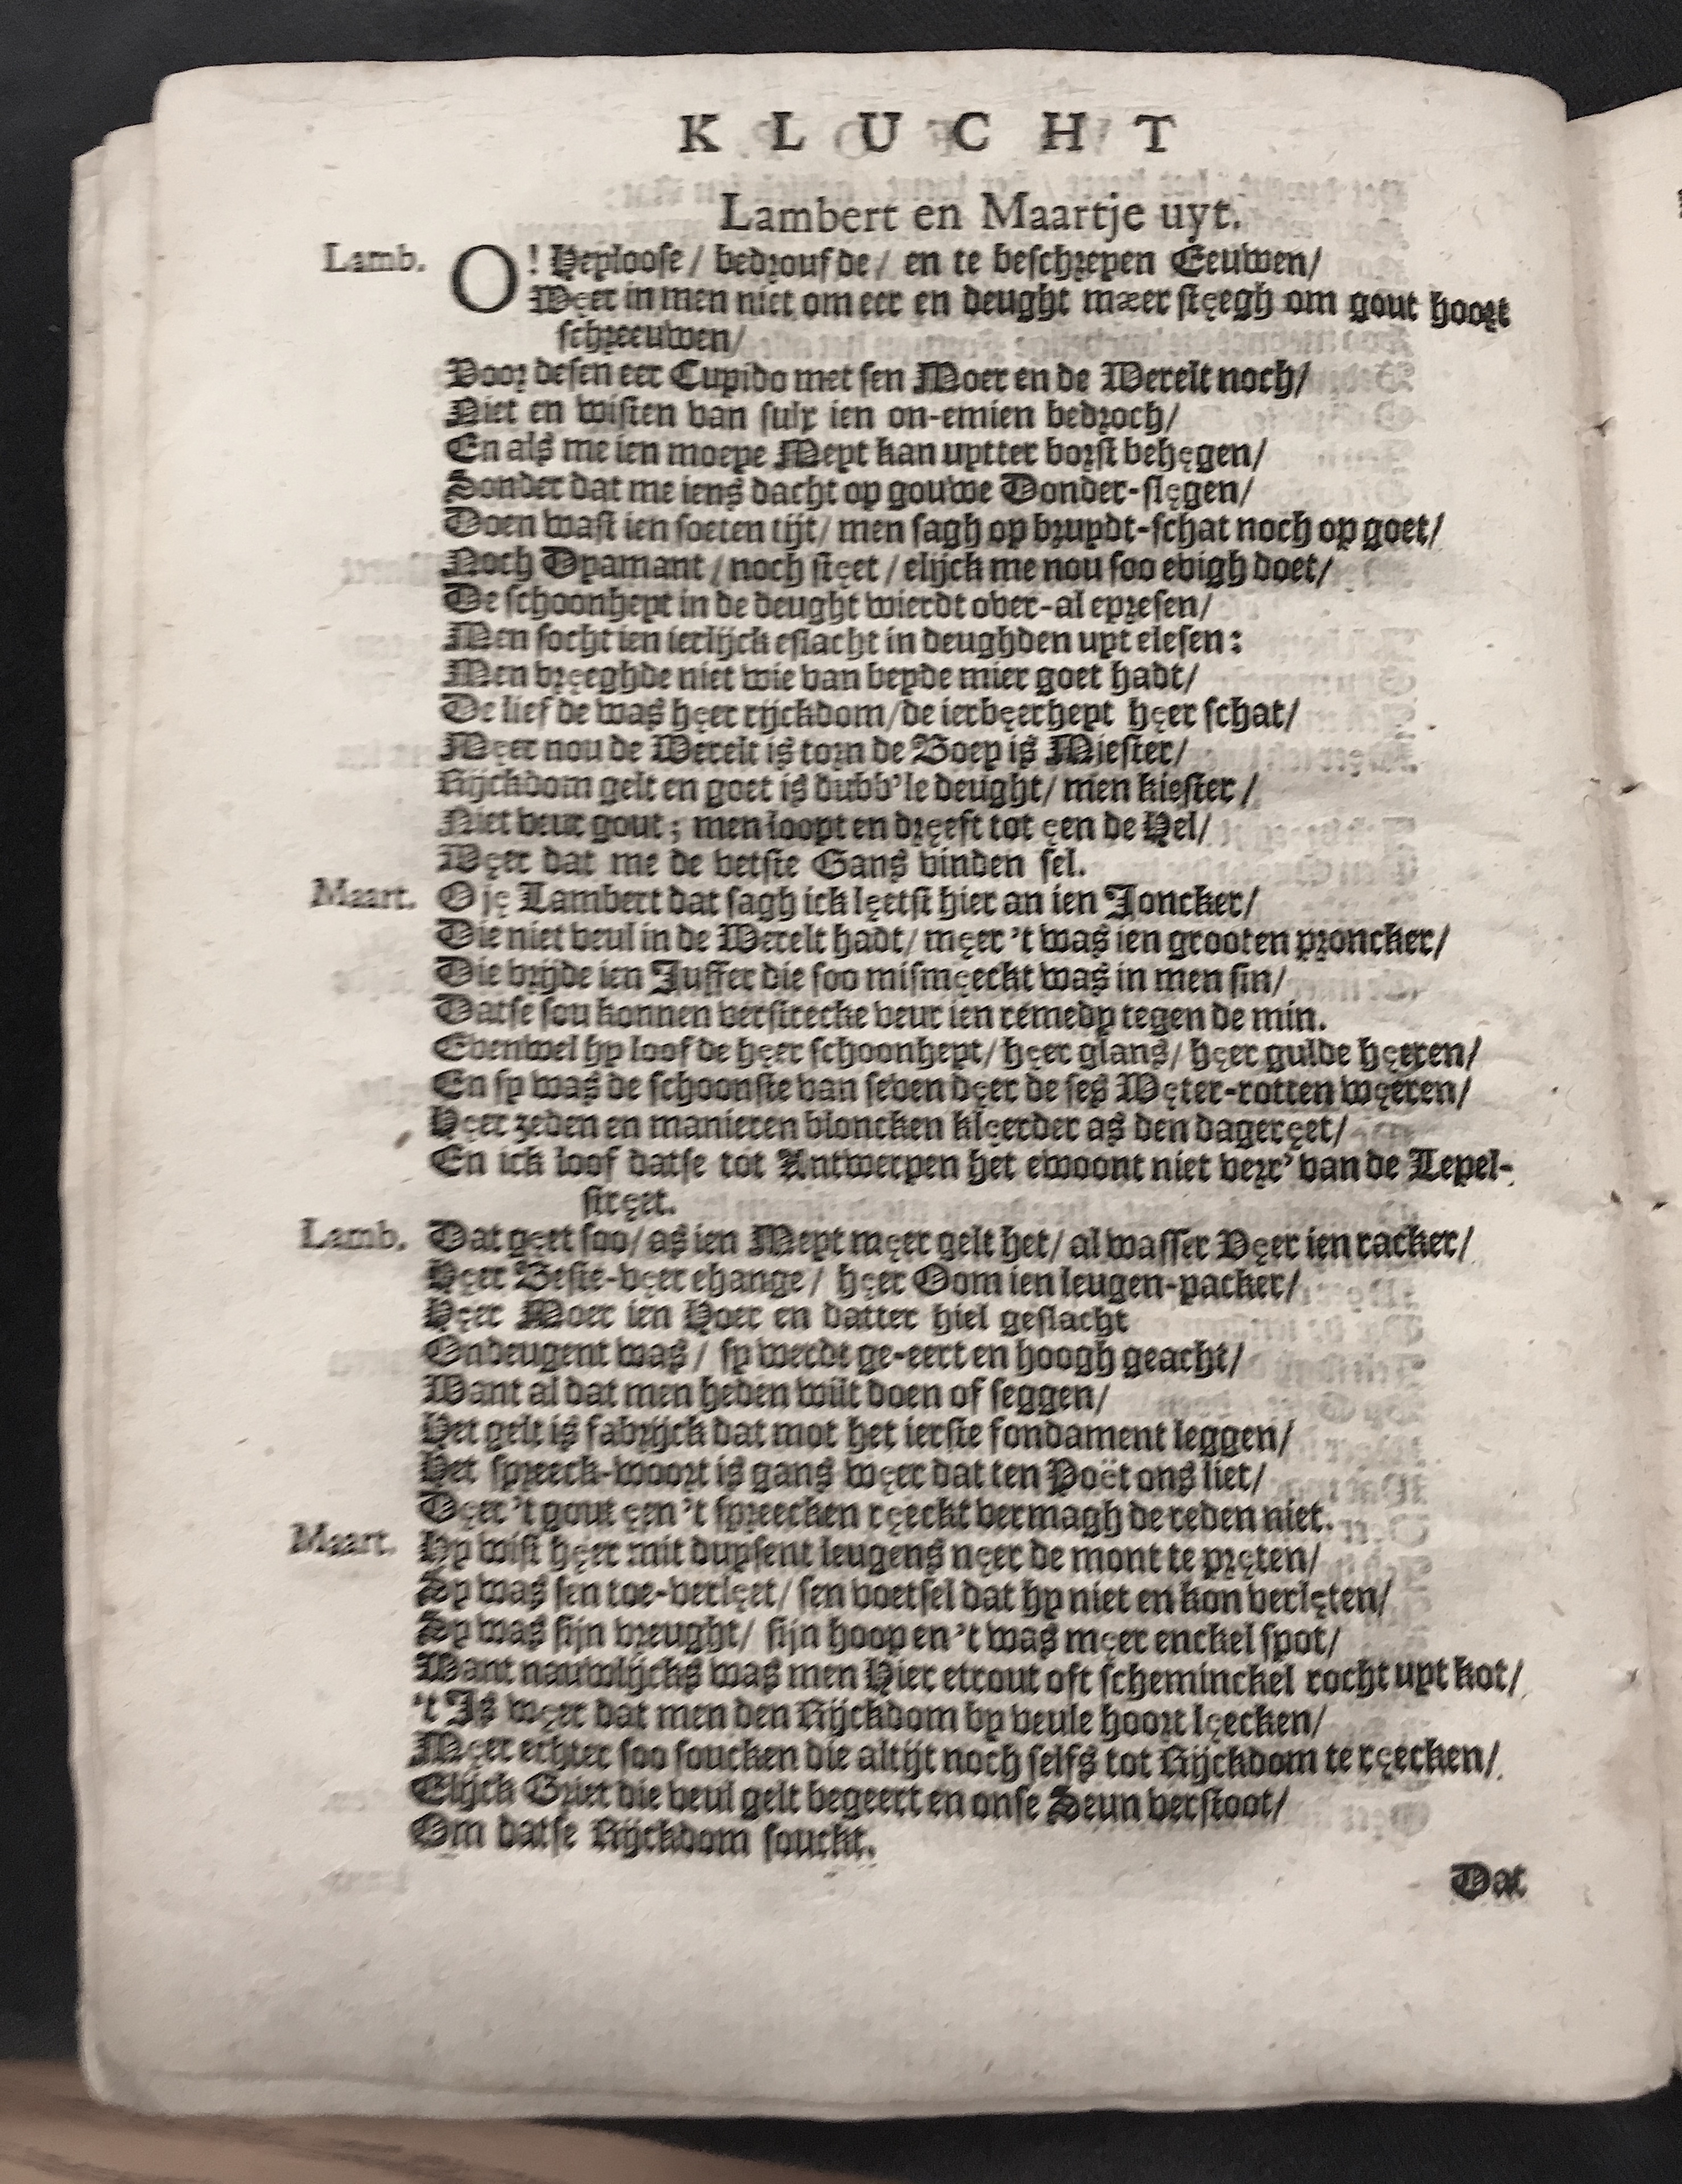 K L U C H T
Lambert en Maartje uyt.
Lamb. O! Heyloose / bedroufde / en te beschreyen Eeuwen /
Węer in men niet om eer en deught mæer stęegh om gout hoort
schreeuwen /
Voor desen eer Cupido met sen Moer en de Werelt noch /
Niet en wisten van sulx ien on-emien bedroch /
En als me ien moeye Meyt kan uytter borst behęgen /
Sonder dat me iens dacht op gouwe Donder-slęgen /
Doen wast ien soeten tijt / men sagh op bruydt-schat noch op goet /
Noch Dyamant / noch stęet / elijck me nou soo evigh doet /
De schoonheyt in de deught wierdt over-al epresen /
Men socht ien ierlijck eslacht in deughden uyt elesen :
Men vręeghde niet wie van beyde mier goet hadt /
De liefde was hęer rijckdom / de ierbęerheyt hęer schat /
Męer nou de Werelt is torn de Boey is Miester /
Rijckdom gelt en goet is dubb'le deught / men kiester /
Niet veur gout ; men loopt en dręeft tot ęen de Hel /
Węer dat me de vetste Gans vinden sel.
Maart. O ję Lambert dat sagh ick lęetst hier an ien Joncker /
Die niet veul in de Werelt hadt / męer 't was ien grooten proncker /
Die vrijde ien Juffer die soo mismęeckt was in men sin /
Datse sou konnen verstrecke veur ien remedy tegen de min.
Evenwel hy loofde hęer schoonheyt / hęer glans / hęer gulde hęeren /
En sy was de schoonste van seven dęer de ses Węter-rotten węeren /
Hęer zeden en manieren bloncken klęerder as den dageręet /
En ick loof datse tot Antwerpen het ewoont niet verr' van de Lepel-
stręet.
Lamb. Dat gęet soo / as ien Meyt męer gelt het / al wasser Vęer ien racker /
Hęer Beste-vęer ehange / hęer Oom ien leugen-packer /
Hęer Moer ien Hoer en datter hiel geslacht
Ondeugent was / sy werdt ge-eert en hoogh geacht /
Want al dat men heden wilt doen of seggen /
Het gelt is fabrijck dat mot het ierste fondament leggen /
Het spreeck-woort is gans węer dat ten Poët ons liet /
Dęer 't gout ęen 't spreecken ręeckt vermagh de reden niet.
Maart. Hy wist hęer mit duysent leugens nęer de mont te pręten /
Sy was sen toe-verlęet / sen voetsel dat hy niet en kon verlęten /
Sy was sijn vreught / sijn hoop en 't was męer enckel spot /
Want nauwlijcks was men Hier etrout oft scheminckel rocht uyt kot /
't Is węer dat men den Rijckdom by veule hoort lęecken /
Męer echter soo soucken die altijt noch selfs tot Rijckdom te ręecken /
Elijck Griet die veul gelt begeert en onse Seun verstoot /
Om datse Rijckdom souckt.
Dat